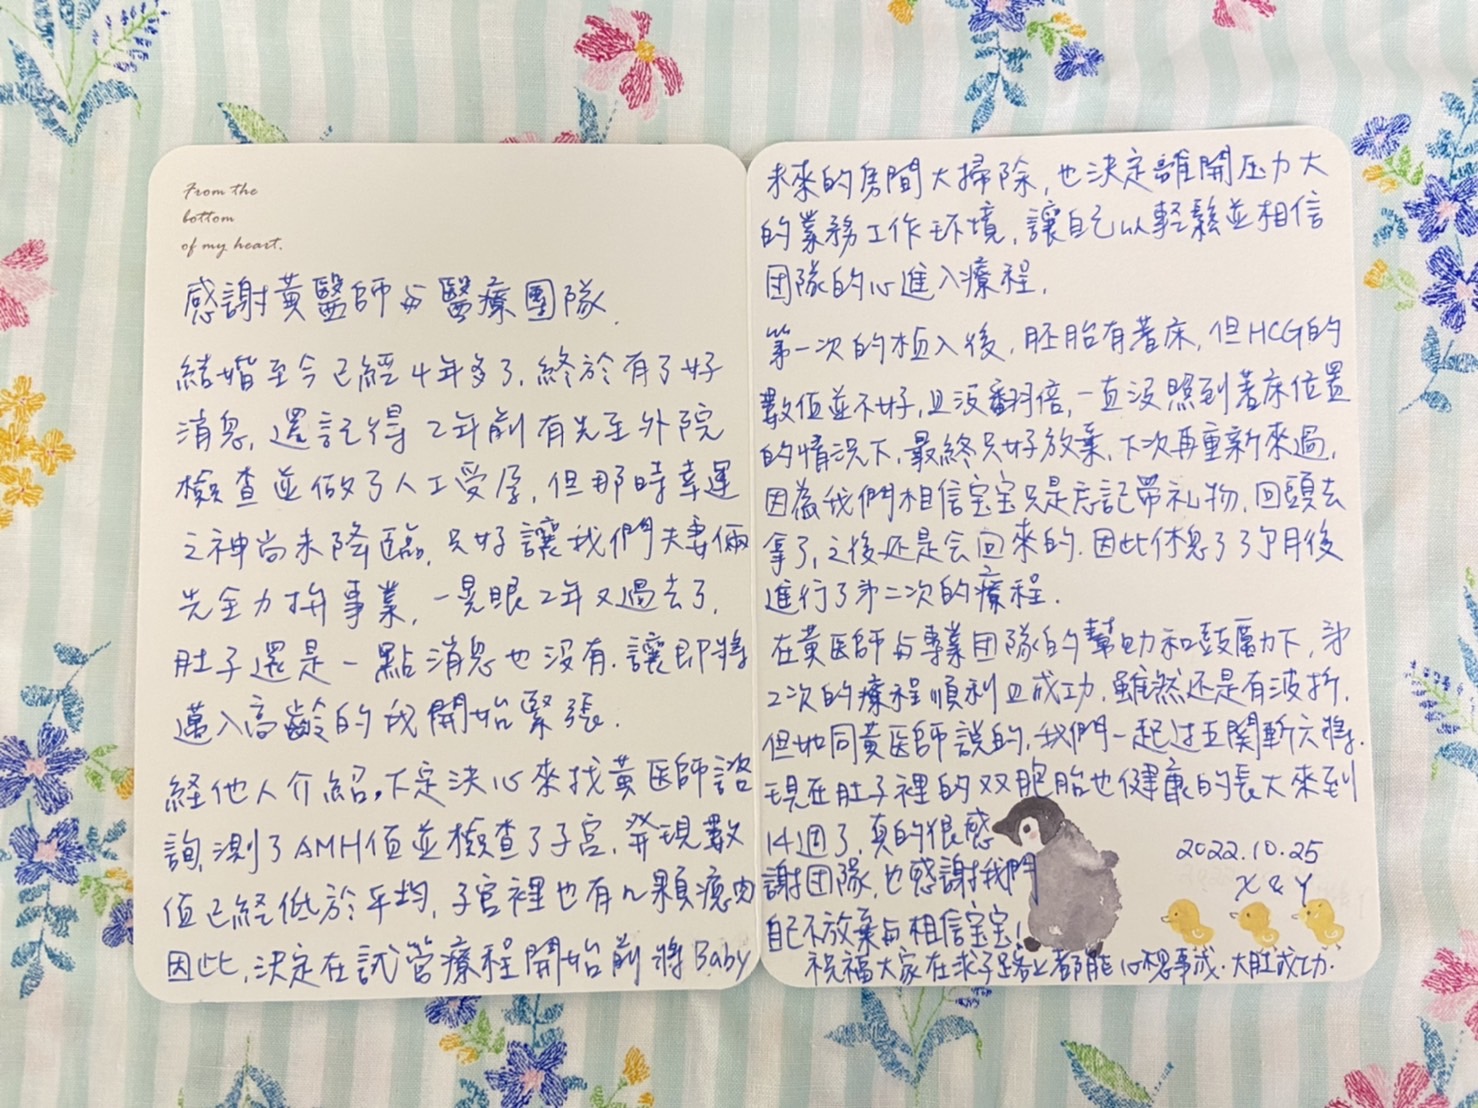 From the
bottom
of my heart.
感謝黃醫師与醫療團隊.
結婚至今已經4年多了,終於有了好
消息,還記得2年前有先至外院
檢查並做了人工受孕,但那時幸運
之神尚未降臨,只好讓我們夫妻倆
先全力拚事業,一晃眼2年又過去了,
肚子還是一點消息也沒有.讓即將
邁入高齡的我開始緊張.
経他人介紹,下定決心來找黃医師諮
詢,測了AMH值並檢查了子宮,発現數
值已経低於平均,子宮裡也有几顆瘜肉
因此,決定在試管療程開始前將Baby
未來的房間大掃除,也決定離開压力大
的業務工作环境,讓自己以輕鬆並相信
团隊的心進入療程.
第一次的植入後,胚胎有著床,但HCG的
數值並不好,且沒翻倍,一直沒照到著床位置
的情況下,最終只好放棄,下次再重新來過,
因為我們相信宝宝只是忘記帶礼物,回頭去
拿了,之後还是会回來的.因此休息了3个月後
進行了第二次的療程.
在黃医師与專業团隊的幫助和鼓勵下,第
2次的療程順利且成功.雖然还是有波折,
但如同黃医師說的,我們一起过五関斬六將.
現在肚子裡的双胞胎也健康的長大來到
14週了,真的很感
謝团隊,也感謝我們
自己不放棄与相信宝宝!
2022.10.25
X & Y
祝福大家在求子路上都能心想事成.大肚成功.